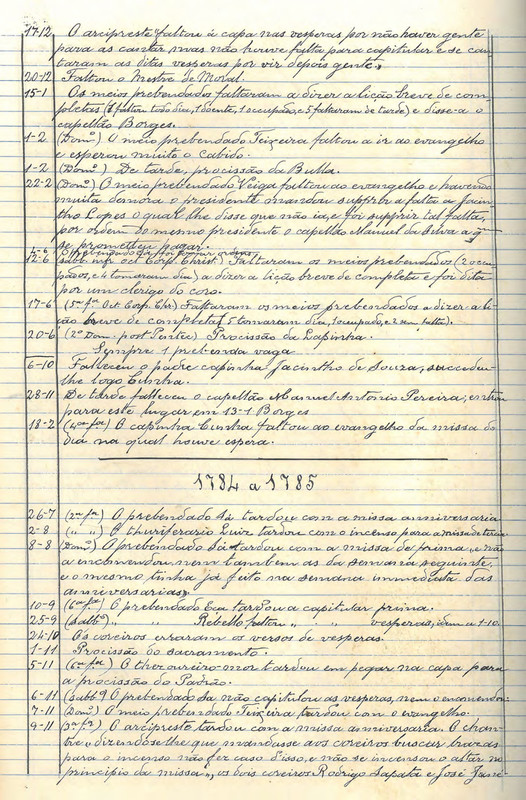 17-12 O arcipreste faltou á capa nas vesperas por não haver gente
para as cantar mas não houve falta para capitular e se can-
taram as ditas vesperas por vir depois gente.
20-12 Faltou o Mestre de Moral.
15-1 Os meio prebendados faltaram a dizer a lição breve de com-
pletas (1 faltou todo dia, 1 doente, 1 occupado, e 5 faltaram de tarde) e disse-a o
capellão Borges.
1-2 (Domº) O meio prebendado Teixeira faltou a ir ao evangelho
e esperou muito o cabido.
1-2 (Domº) De tarde, procissão da Bulla.
22-2 (Domº) O meio prebendado Veiga faltou ao evangelho e havendo
muita demora o presidente mandou supprir a falta a Jacin-
tho Lopes o qual lhe disse que não ia, e foi supprir tal falta,
por ordem do mesmo presidente o capellão Manuel da Silva a q
se prometteu pagar.
12-6 (sabb. infr. oct. Corp. Christ.) Faltaram os meios prebendados (2 occu-
pados, e 4 tomaram dia) a dizer a lição breve de completa e foi dita
por um clerigo do coro.
17-6 (5ª fª Oct. Corp. Chr.) Faltaram os meios prebendados a dizer a li-
ção breve de completas (5 tomaram dia, 1 occupado, e 2 sem falta).
20-6 (2º Dom. post Pentec) Procissão da Lapinha.
Sempre 1 prebenda vaga
6-10 Falleceu o padre capinha Jacintho de Souza, succedeu-
lhe logo Cunha.
28-11 De tarde falleceu o capellão Manuel Antonio Pereira; entrou
para este lugar em 13-1 Borges
18-2 (4ª fª) O capinha Cunha faltou ao evangelho da missa do
dia na qual houve espera.
1784 a 1785
26-7 (2ª fª) O prebendado Sá tardou com a missa anniversaria
2-8 (" ") O thuriferario Luiz tardou com o incenso para a missa de tercia
8-8 (Domº) O prebendado Sá tardou com a missa de prima "e não
a encomendou nem tambem as da semana seguinte,
e o mesmo tinha já feito na semana immediata das
anniversarias"
10-9 (6ª fª) O prebendado Eça tardou a capitular prima.
25-9 (sabbº) " " Rebello faltou " " vesperas, idem a 1-10.
24-10 Os coreiros erraram os versos de vesperas.
1-11 Procissão do sacramento.
5-11 (6ª fª) O thezoureiro-mor tardou em pegar na capa para
a procissão do Padrão.
6-11 (sabbº) O prebendado Sá não capitulou as vesperas, nem o encomendou.
7-11 (Domº) O meio prebendado Teixeira tardou com o evangelho.
9-11 (3ª fª) O arcipreste tardou com a missa anniversaria. O chan-
tre "dizendo-se-lhe que mandasse aos coreiros buscar brazas
para o incenso não fez caso disso, e não se incensou o altar no
principio da missa", os dois coreiros Rodrigo Sapata e José Jane-